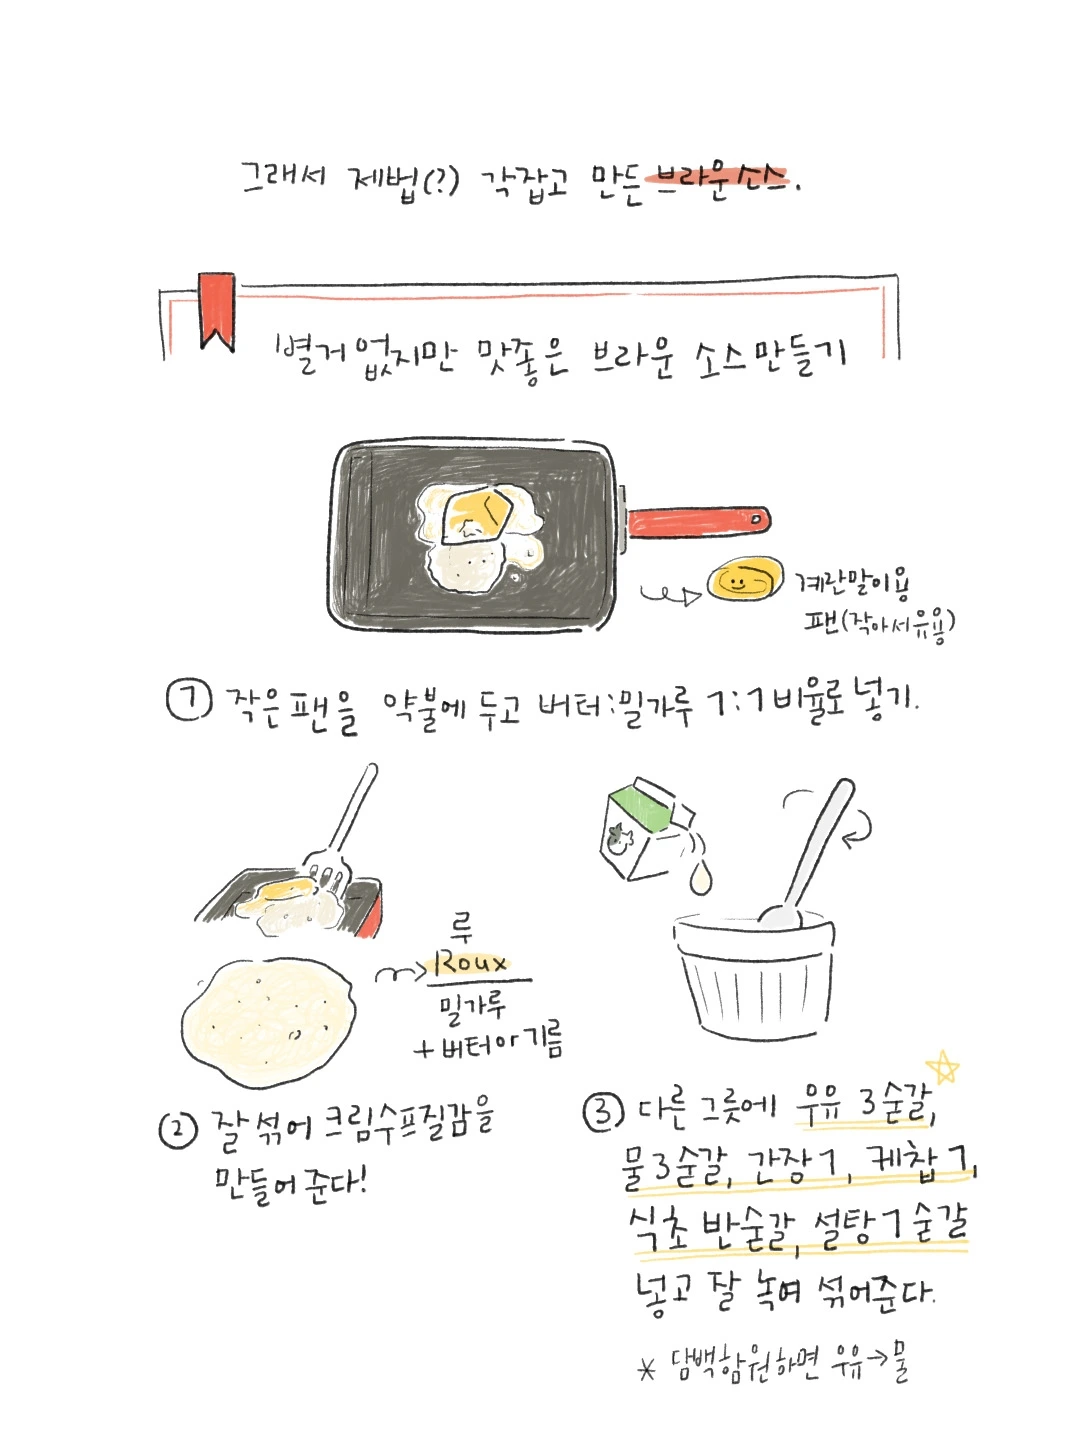 그래서 제법(?) 각잡고 만든 브라운소스.
별거없지만 맛좋은 브라운 소스만들기
계란말이용
팬(작아서유용)
① 작은팬을 약불에 두고 버터:밀가루 1:1비율로 넣기.
루
Roux
밀가루
+버터or기름
② 잘섞어 크림수프질감을
만들어 준다!
③ 다른 그릇에 우유 3숟갈,
물3숟갈, 간장1, 케찹1,
식초 반숟갈, 설탕1숟갈
넣고 잘 녹여 섞어준다.
* 담백함원하면 우유→물